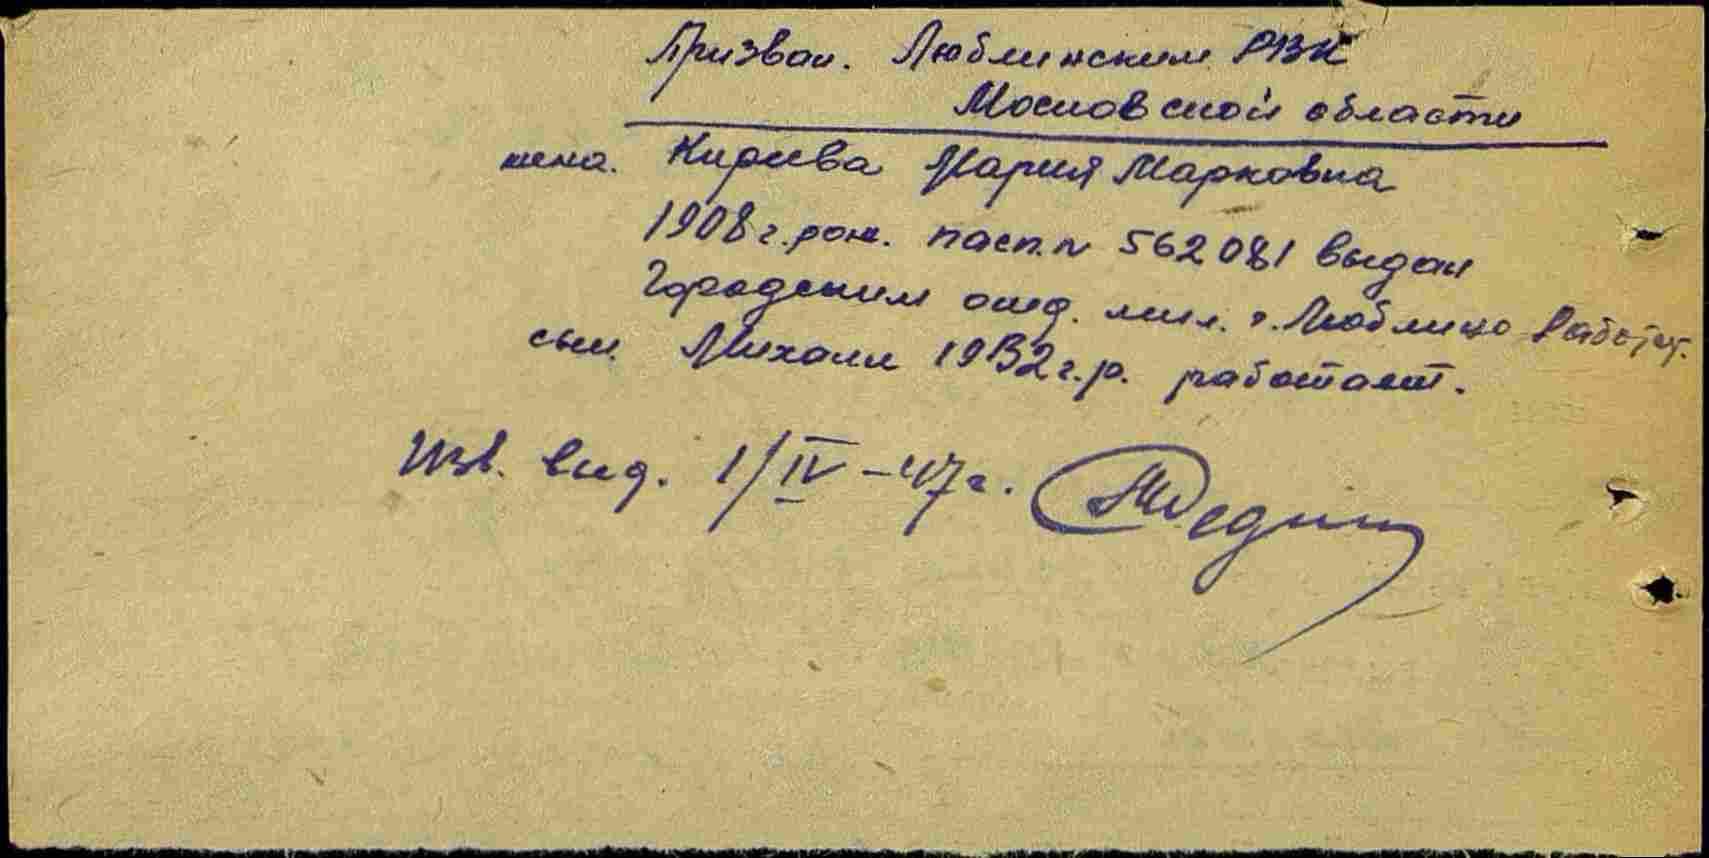 Призван. Люблинским РВК
Московской области
жена. Кирсева Мария Марковна
1908 г. рож. пасп. № 562081 выдан
Городским отд. мил. г. Люблино Работает.
сын. Михаил 1932 г.р. работает.
Изв. выд. 1/IV-47 г.